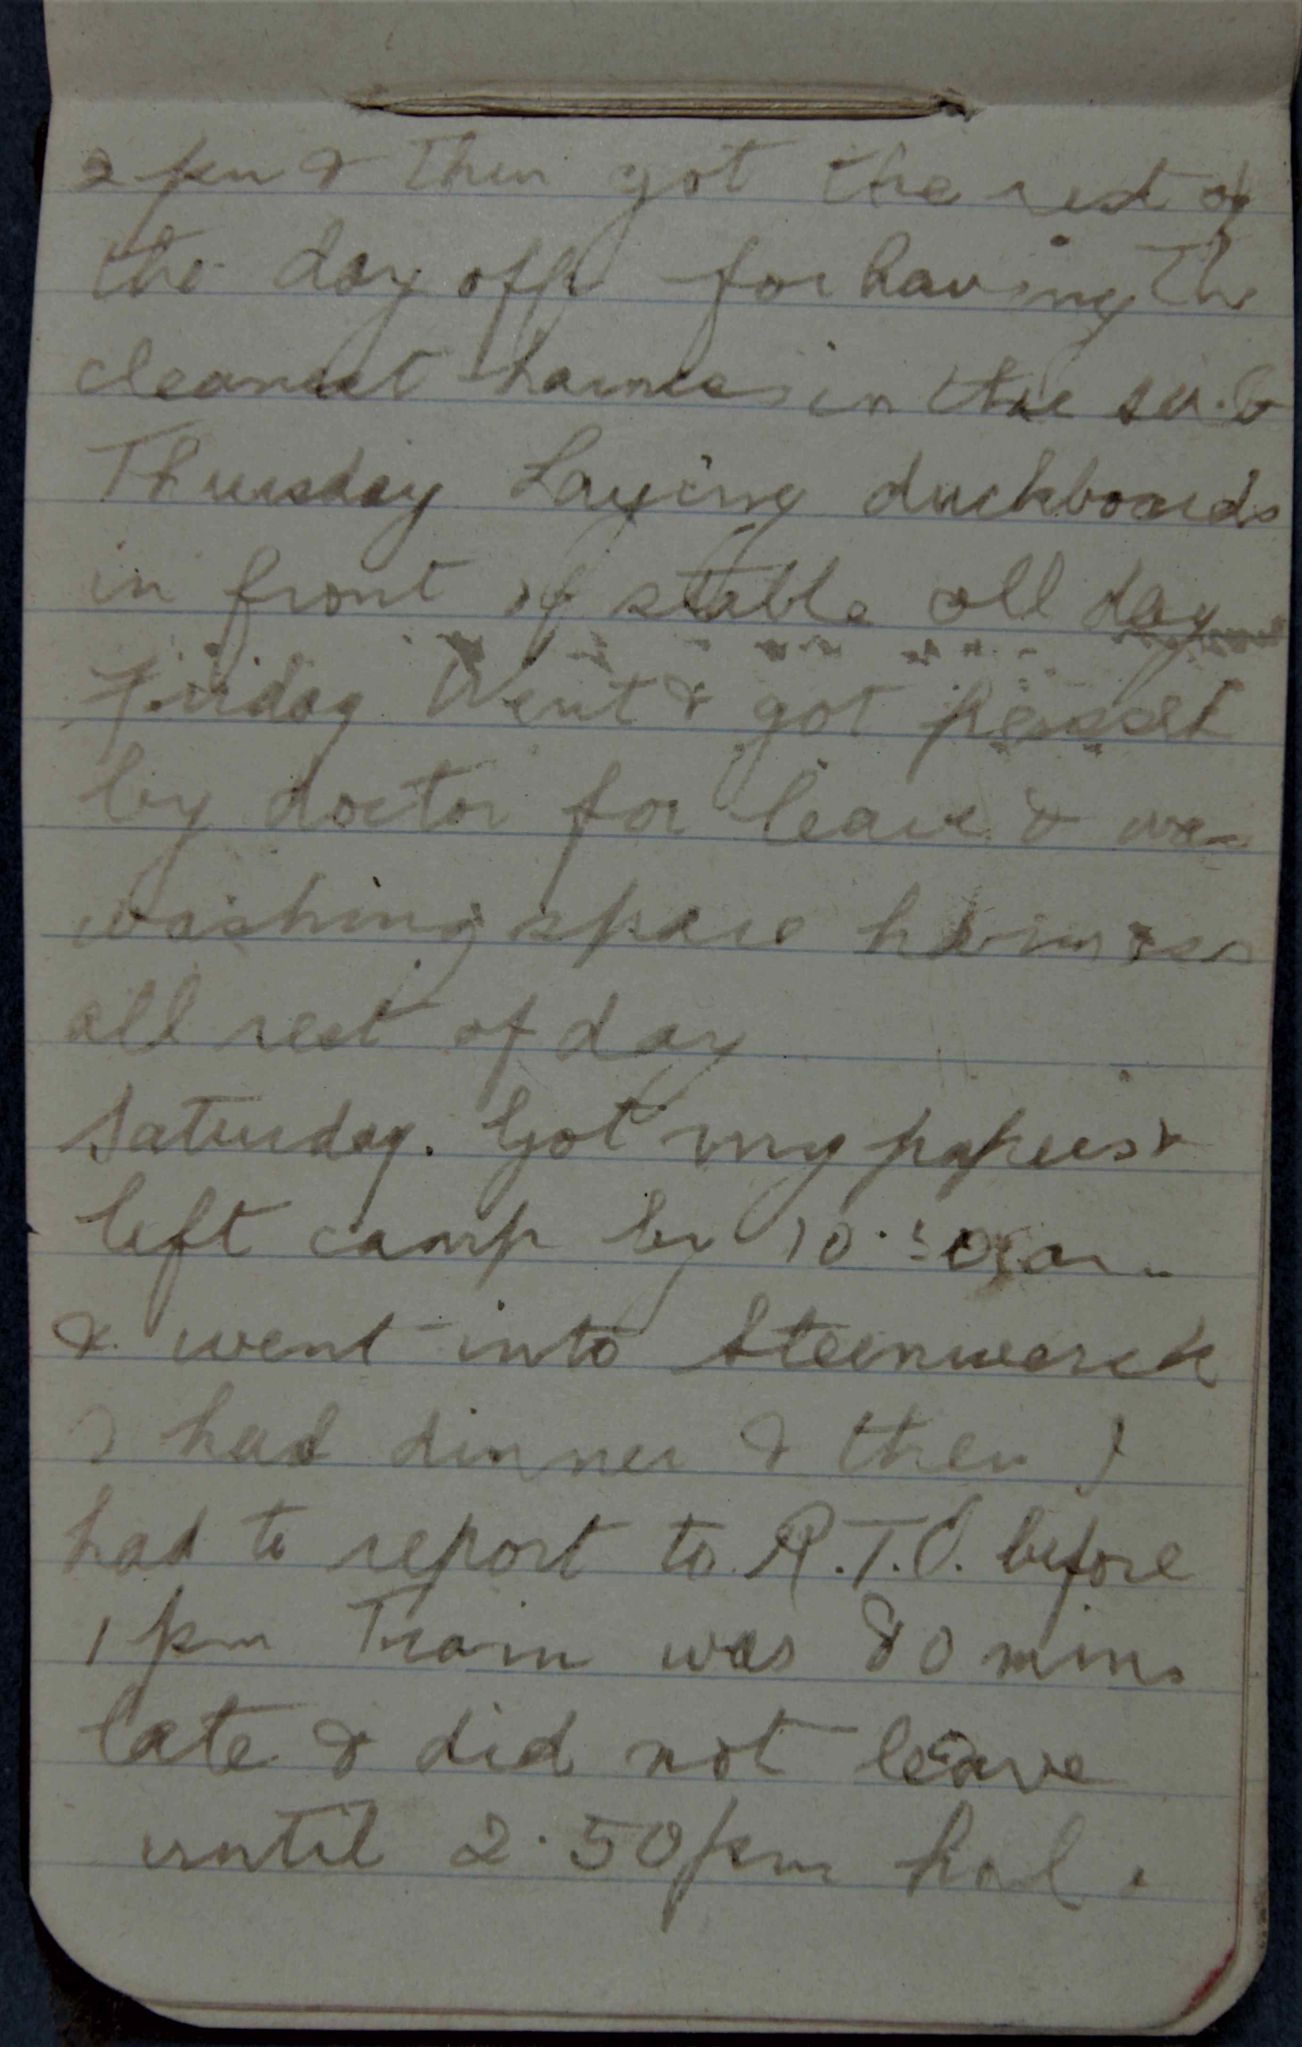 2 pm & then got the rest of
the day off for having the
cleanest harness in the
Thursday Laying duckboards
in front of stable all day
Friday Went & got passed
by doctor for leave & was
washing spare harness
all rest of day
Saturday. Got my papers &
left camp by 10.30 am
& went into Steenwerck
& had dinner & then I
had to report to R.T.O. before
1 pm Train was 80 mins
late & did not leave
until 2.50 pm had